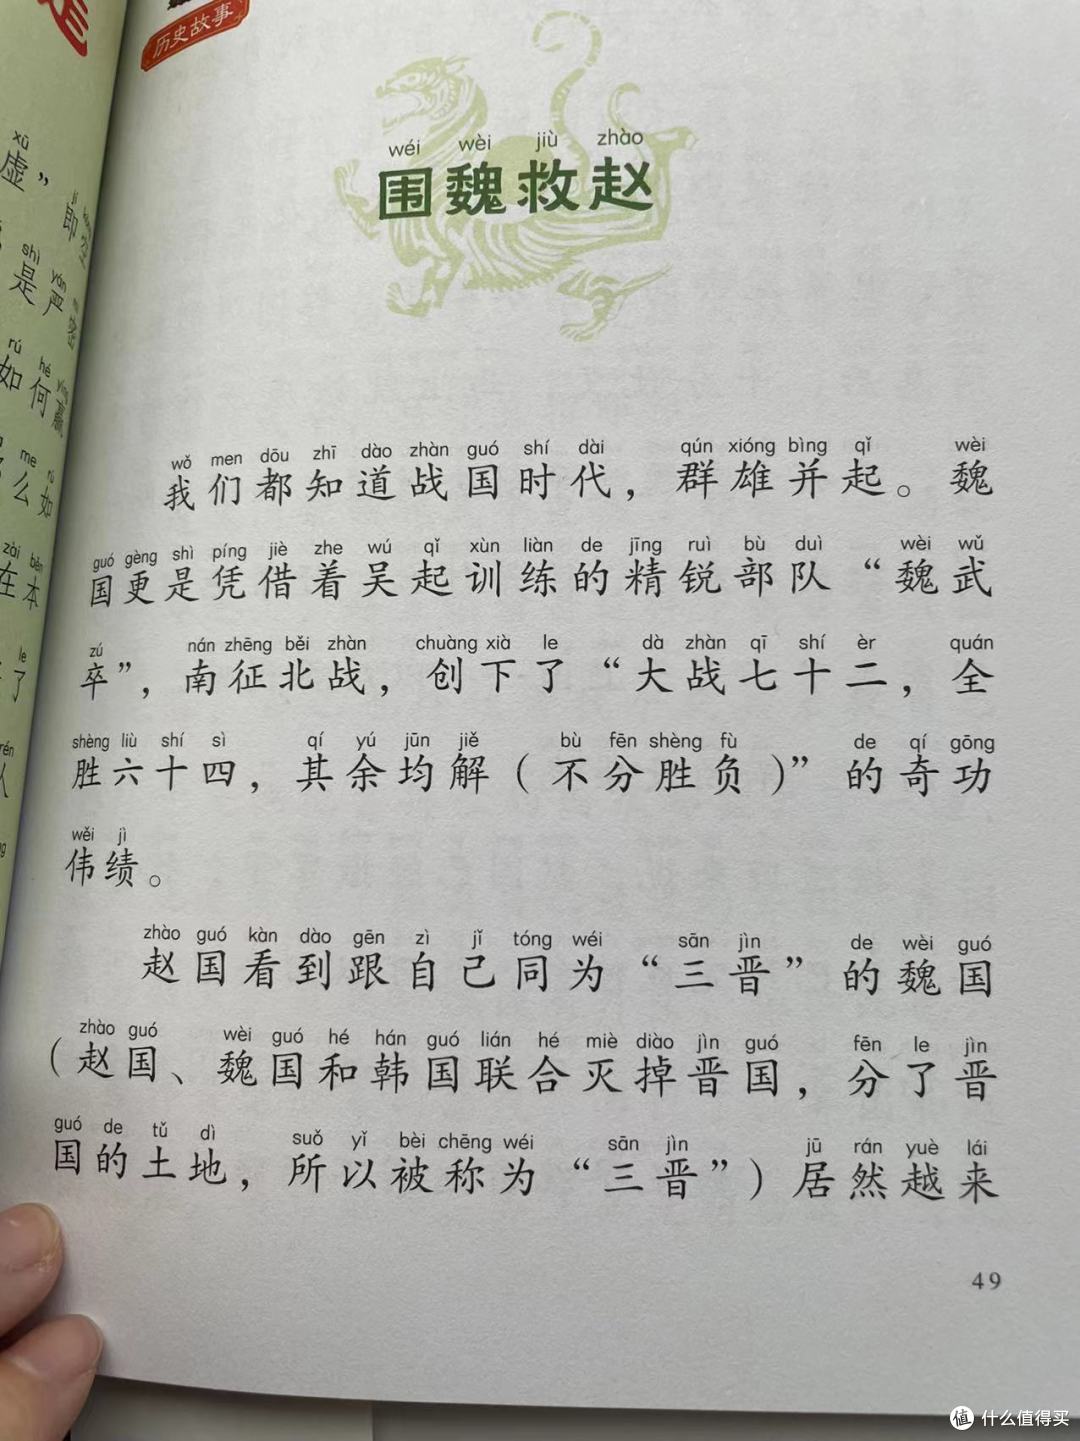 历史故事
wéi wèi jiù zhào
围魏救赵
wǒ men dōu zhī dào zhàn guó shí dài qún xióng bìng qǐ wèi
我们都知道战国时代，群雄并起。魏
guó gèng shì píng jiè zhe wú qǐ xùn liàn de jīng ruì bù duì wèi wǔ
国更是凭借着吴起训练的精锐部队“魏武
zú nán zhēng běi zhàn chuàng xià le dà zhàn qī shí èr quán
卒”，南征北战，创下了“大战七十二，全
shèng liù shí sì qí yú jūn jiě bù fēn shèng fù de qí gōng
胜六十四，其余均解（不分胜负）”的奇功
wěi jì
伟绩。
zhào guó kàn dào gēn zì jǐ tóng wéi sān jìn de wèi guó
赵国看到跟自己同为“三晋”的魏国
zhào guó wèi guó hé hán guó lián hé miè diào jìn guó fēn le jìn
（赵国、魏国和韩国联合灭掉晋国，分了晋
guó de tǔ dì suǒ yǐ bèi chēng wéi sān jìn jū rán yuè lái
国的土地，所以被称为“三晋”）居然越来
49
xū
虚”
jí
即空
shì yán
是严密
rú hé yíng
如何赢
me rú
么如
zài běn
在本
le
了
值 什么值得买